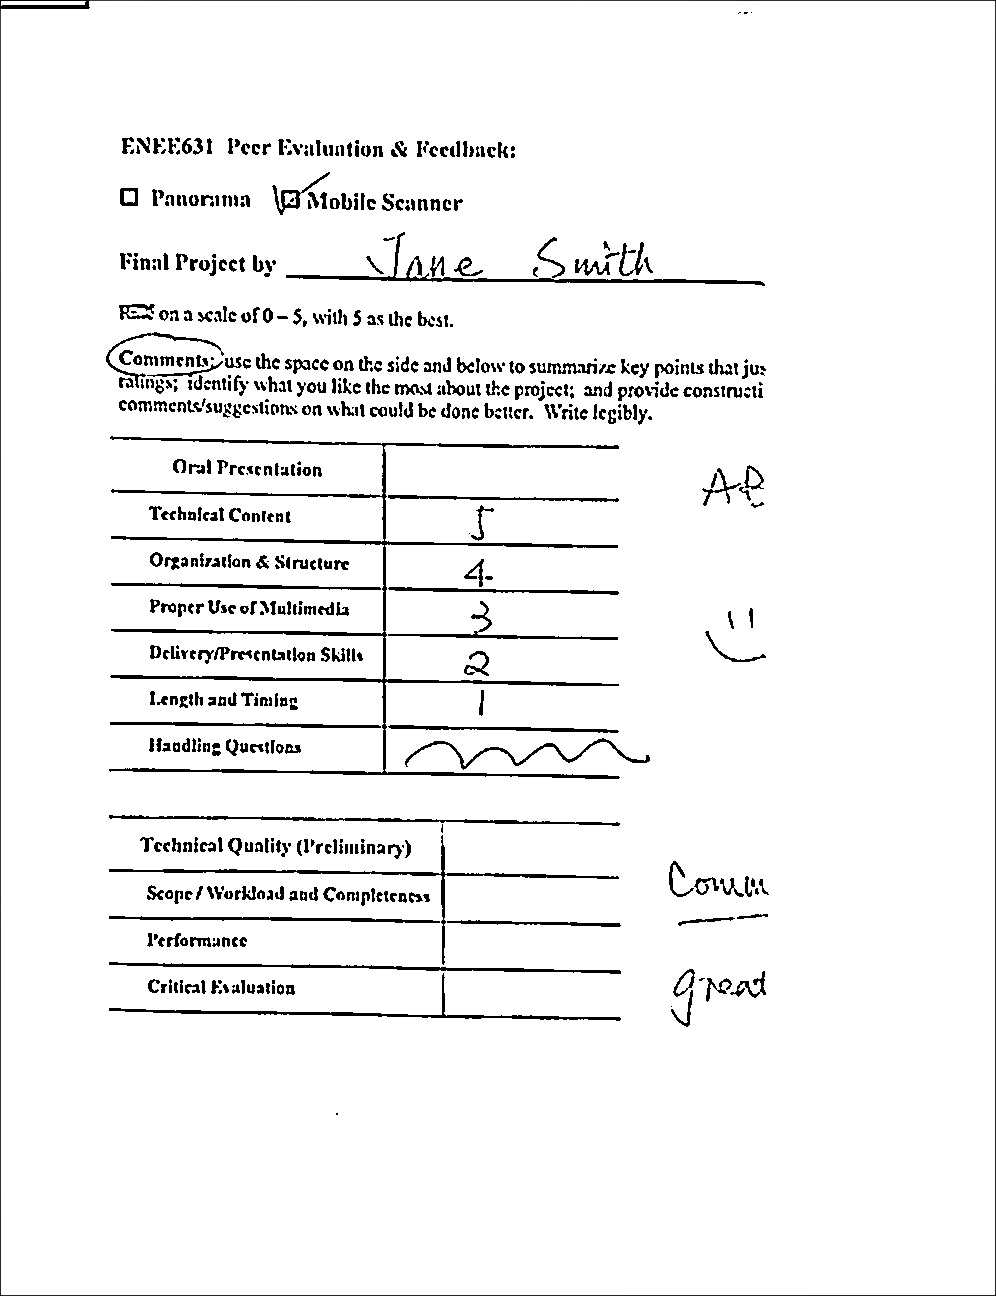 ENEE631 Peer Evaluation & Feedback:
Panorama Mobile Scanner
Final Project by Jane Smith
on a scale of 0 – 5, with 5 as the best.
Comments: use the space on the side and below to summarize key points that jus
ratings; identify what you like the most about the project; and provide constructi
comments/suggestions on what could be done better. Write legibly.
Oral Presentation
Technical Content 5
Organization & Structure 4
Proper Use of Multimedia 3
Delivery/Presentation Skills 2
Length and Timing 1
Handling Questions
Technical Quality (Preliminary)
Scope / Workload and Completeness
Comm
Performance
Critical Evaluation
great